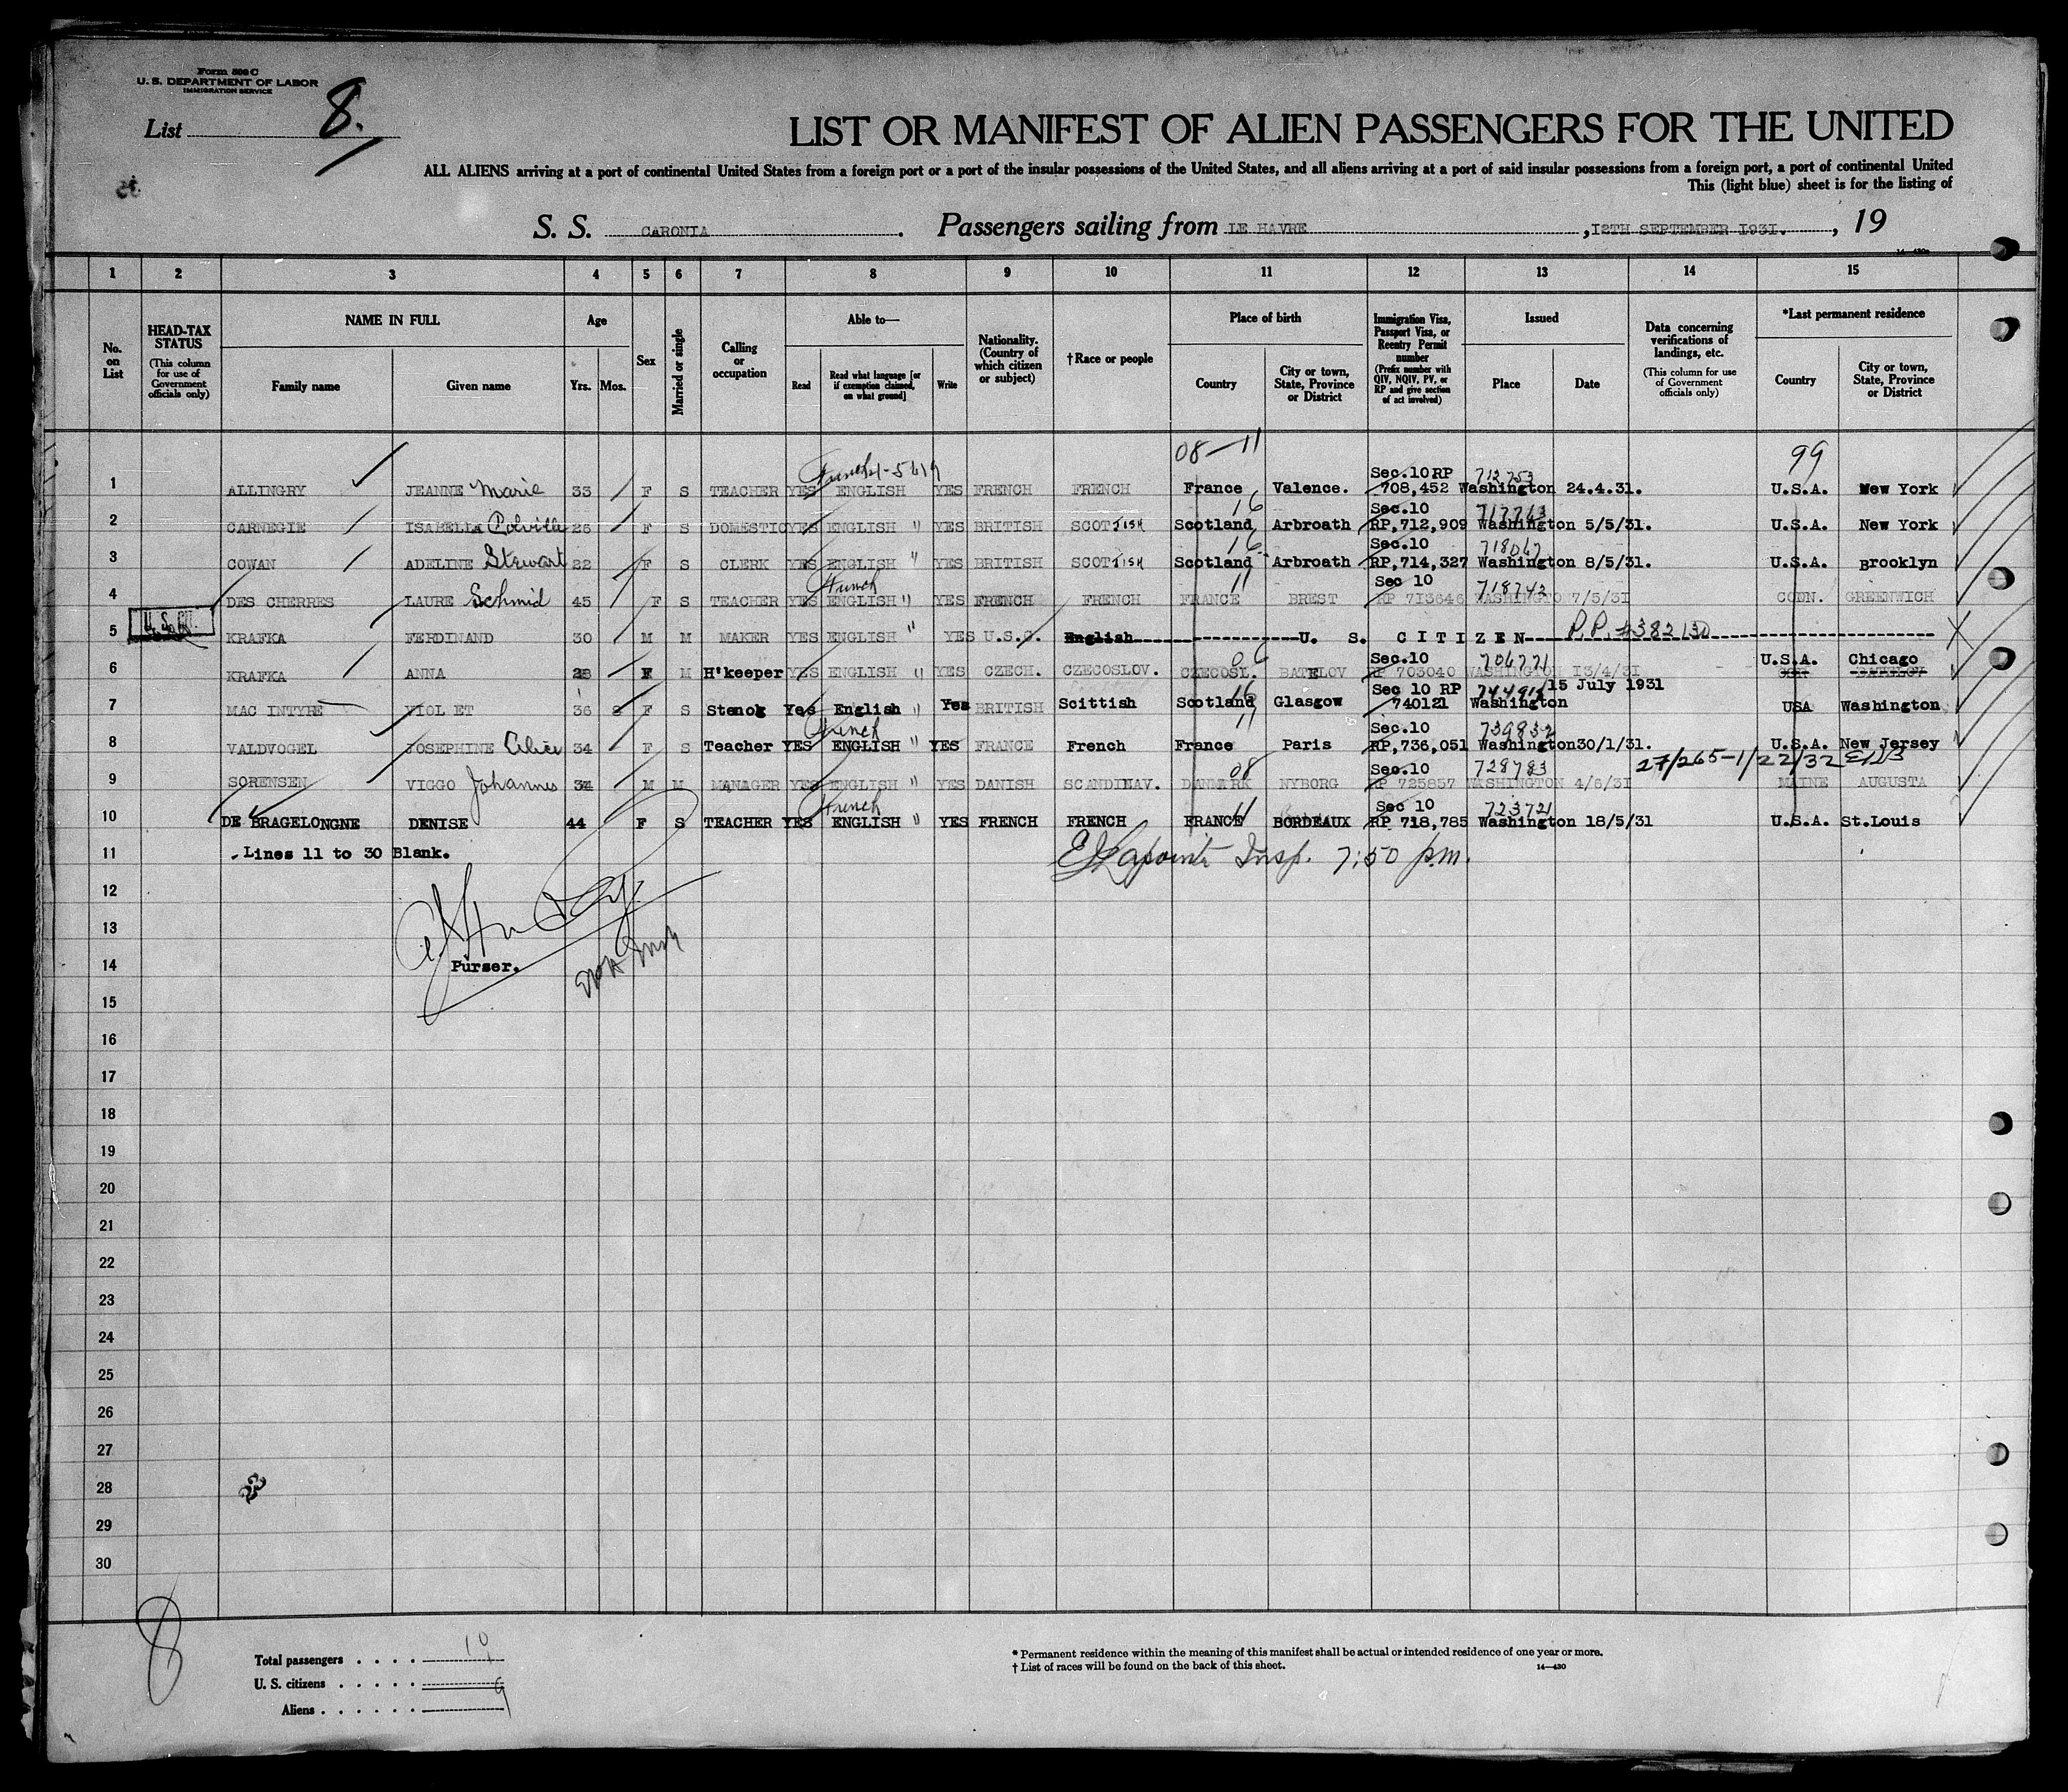 Form 500 C
U. S. DEPARTMENT OF LABOR
IMMIGRATION SERVICE
List 8.
LIST OR MANIFEST OF ALIEN PASSENGERS FOR THE UNITED
ALL ALIENS arriving at a port of continental United States from a foreign port or a port of the insular possessions of the United States, and all aliens arriving at a port of said insular possessions from a foreign port, a port of continental United
This (light blue) sheet is for the listing of
S. S. CARONIA. Passengers sailing from LE HAVRE, 12TH SEPTEMBER 1931., 19
1 2 3 4 5 6 7 8 9 10 11 12 13 14 15
No. on List
HEAD-TAX STATUS (This column for use of Government officials only)
NAME IN FULL
Family name Given name
Age
Yrs. Mos.
Sex
Married or single
Calling or occupation
Able to—
Read
Read what language [or if exemption claimed, on what ground]
Write
Nationality. (Country of which citizen or subject)
†Race or people
Place of birth
Country
City or town, State, Province or District
Immigration Visa, Passport Visa, or Reentry Permit number (Prefix number with QIV, NQIV, PV, or RP and give section of act involved)
Issued
Place Date
Data concerning verifications of landings, etc. (This column for use of Government officials only)
*Last permanent residence
Country
City or town, State, Province or District
08-11 99
1 ALLINGRY JEANNE Marie 33 F S TEACHER YES French ENGLISH YES FRENCH FRENCH France Valence. Sec.10 RP 708,452 712753 Washington 24.4.31. U.S.A. New York
2 CARNEGIE ISABELLA Colville 26 F S DOMESTIC YES ENGLISH " YES BRITISH SCOTTISH 16 Scotland Arbroath Sec.10 RP,712,909 717763 Washington 5/5/31. U.S.A. New York
3 COWAN ADELINE Stewart 22 F S CLERK YES ENGLISH " YES BRITISH SCOTTISH 16 Scotland Arbroath Sec.10 RP,714,327 718067 Washington 8/5/31. U.S.A. Brooklyn
4 DES CHERRES LAURE Schmid 45 F S TEACHER YES French ENGLISH " YES FRENCH FRENCH 11 FRANCE BREST Sec 10 RP 713646 718743 WASHINGTO 7/5/31 CODN. GREENWICH
5 KRAFKA FERDINAND 30 M M MAKER YES ENGLISH " YES U.S.C. English U. S. CITIZEN P.P. #382130
6 KRAFKA ANNA 28 F M H'keeper YES ENGLISH " YES CZECH. CZECOSLOV. 06 CZECOSL. BATELOV Sec.10 RP 703040 706771 WASHINGTON 13/4/31 U.S.A. Chicago
7 MAC INTYRE VIOLET 36 8 F S Stenog Yes English " Yes BRITISH Scittish 16 Scotland Glasgow Sec 10 RP 740121 744914 Washington 15 July 1931 USA Washington
8 VALDVOGEL JOSEPHINE Alice 34 F S Teacher YES French ENGLISH " YES FRANCE French 11 France Paris Sec.10 RP,736,051 739832 Washington 30/1/31. U.S.A. New Jersey
27/265-1/22/32
9 SORENSEN VIGGO Johannes 34 M M MANAGER YES ENGLISH " YES DANISH SCANDINAV. 08 DANMARK NYBORG Sec.10 RP 725857 728783 WASHINGTON 4/6/31 MAINE AUGUSTA
10 DE BRAGELONGNE DENISE 44 F S TEACHER YES French ENGLISH " YES FRENCH FRENCH 11 FRANCE BORDEAUX Sec 10 RP 718,785 723721 Washington 18/5/31 U.S.A. St.Louis
11 Lines 11 to 30 Blank. E J Lapointe Insp. 7:50 p.m.
12
13
14 Purser.
15
16
17
18
19
20
21
22
23
24
25
26
27
28
29
30
8
Total passengers . . . . 10
U. S. citizens . . . . .
Aliens . . . . . . 9
* Permanent residence within the meaning of this manifest shall be actual or intended residence of one year or more.
† List of races will be found on the back of this sheet. 14—430